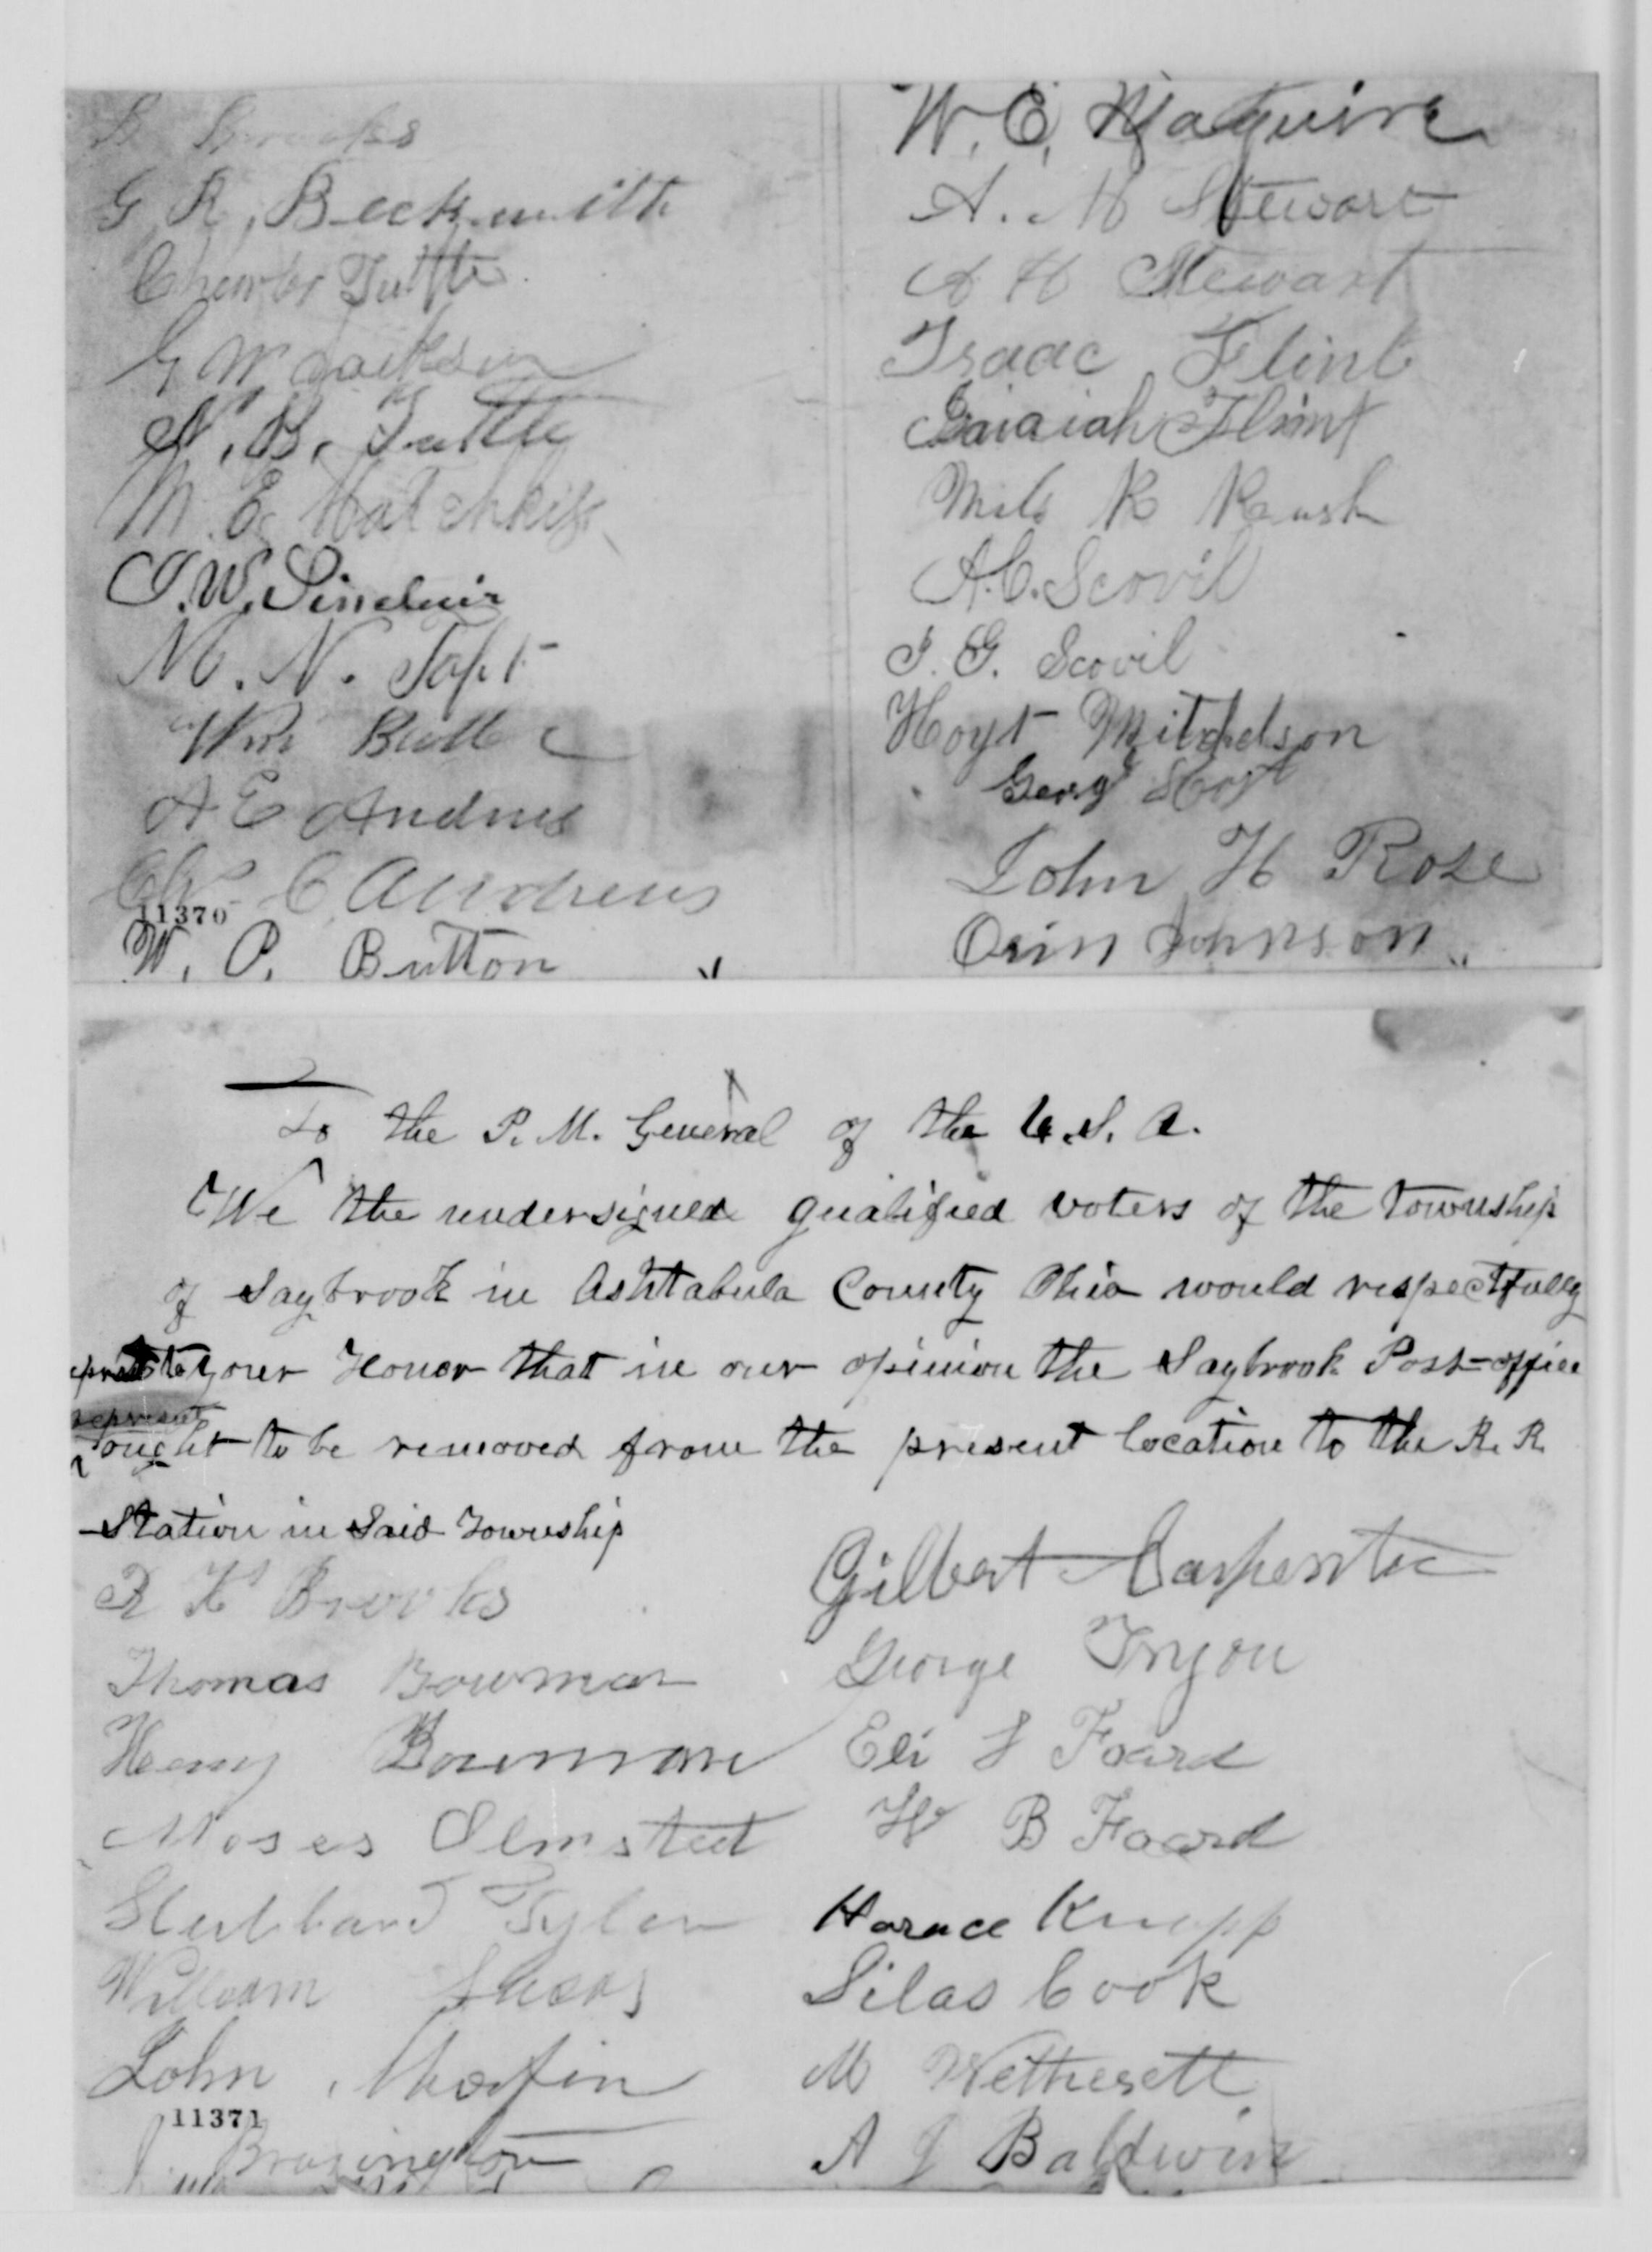 Brooks
G. R. Beckwith
Charles Tuttle
G W Jackson
N. B. Tuttle
M. E. Hotchkiss
J. W. Sinclair
M. N. Taft
Wm
A E Andrus
C Andrews
11370
W. P. Button
W. E. Maguire
A. M Stewart
A H Stewart
Isaac Flint
Isaiah Flint
R
A. C. Scovil
J. G. Scovil
Hoyt Mitchelson
John H Rose
Orin Johnson
To the P. M. General of the U. S. A.
We the undersigned qualified voters of the township
of Saybrook in Ashtabula County Ohio would respectfully
your Honor that in our opinion the Saybrook Post-office
represent
ought to be removed from the present location to the R. R
Station in Said Township
R K Brooks
Thomas Bowman
Henry Bowman
Moses Olmsted
Hubbard Tyler
William
John Martin
11371
Brazington
Gilbert Carpenter
George Tryon
Eli S Foard
W B Foard
Horace Knapp
Silas Cook
M
A J Baldwin